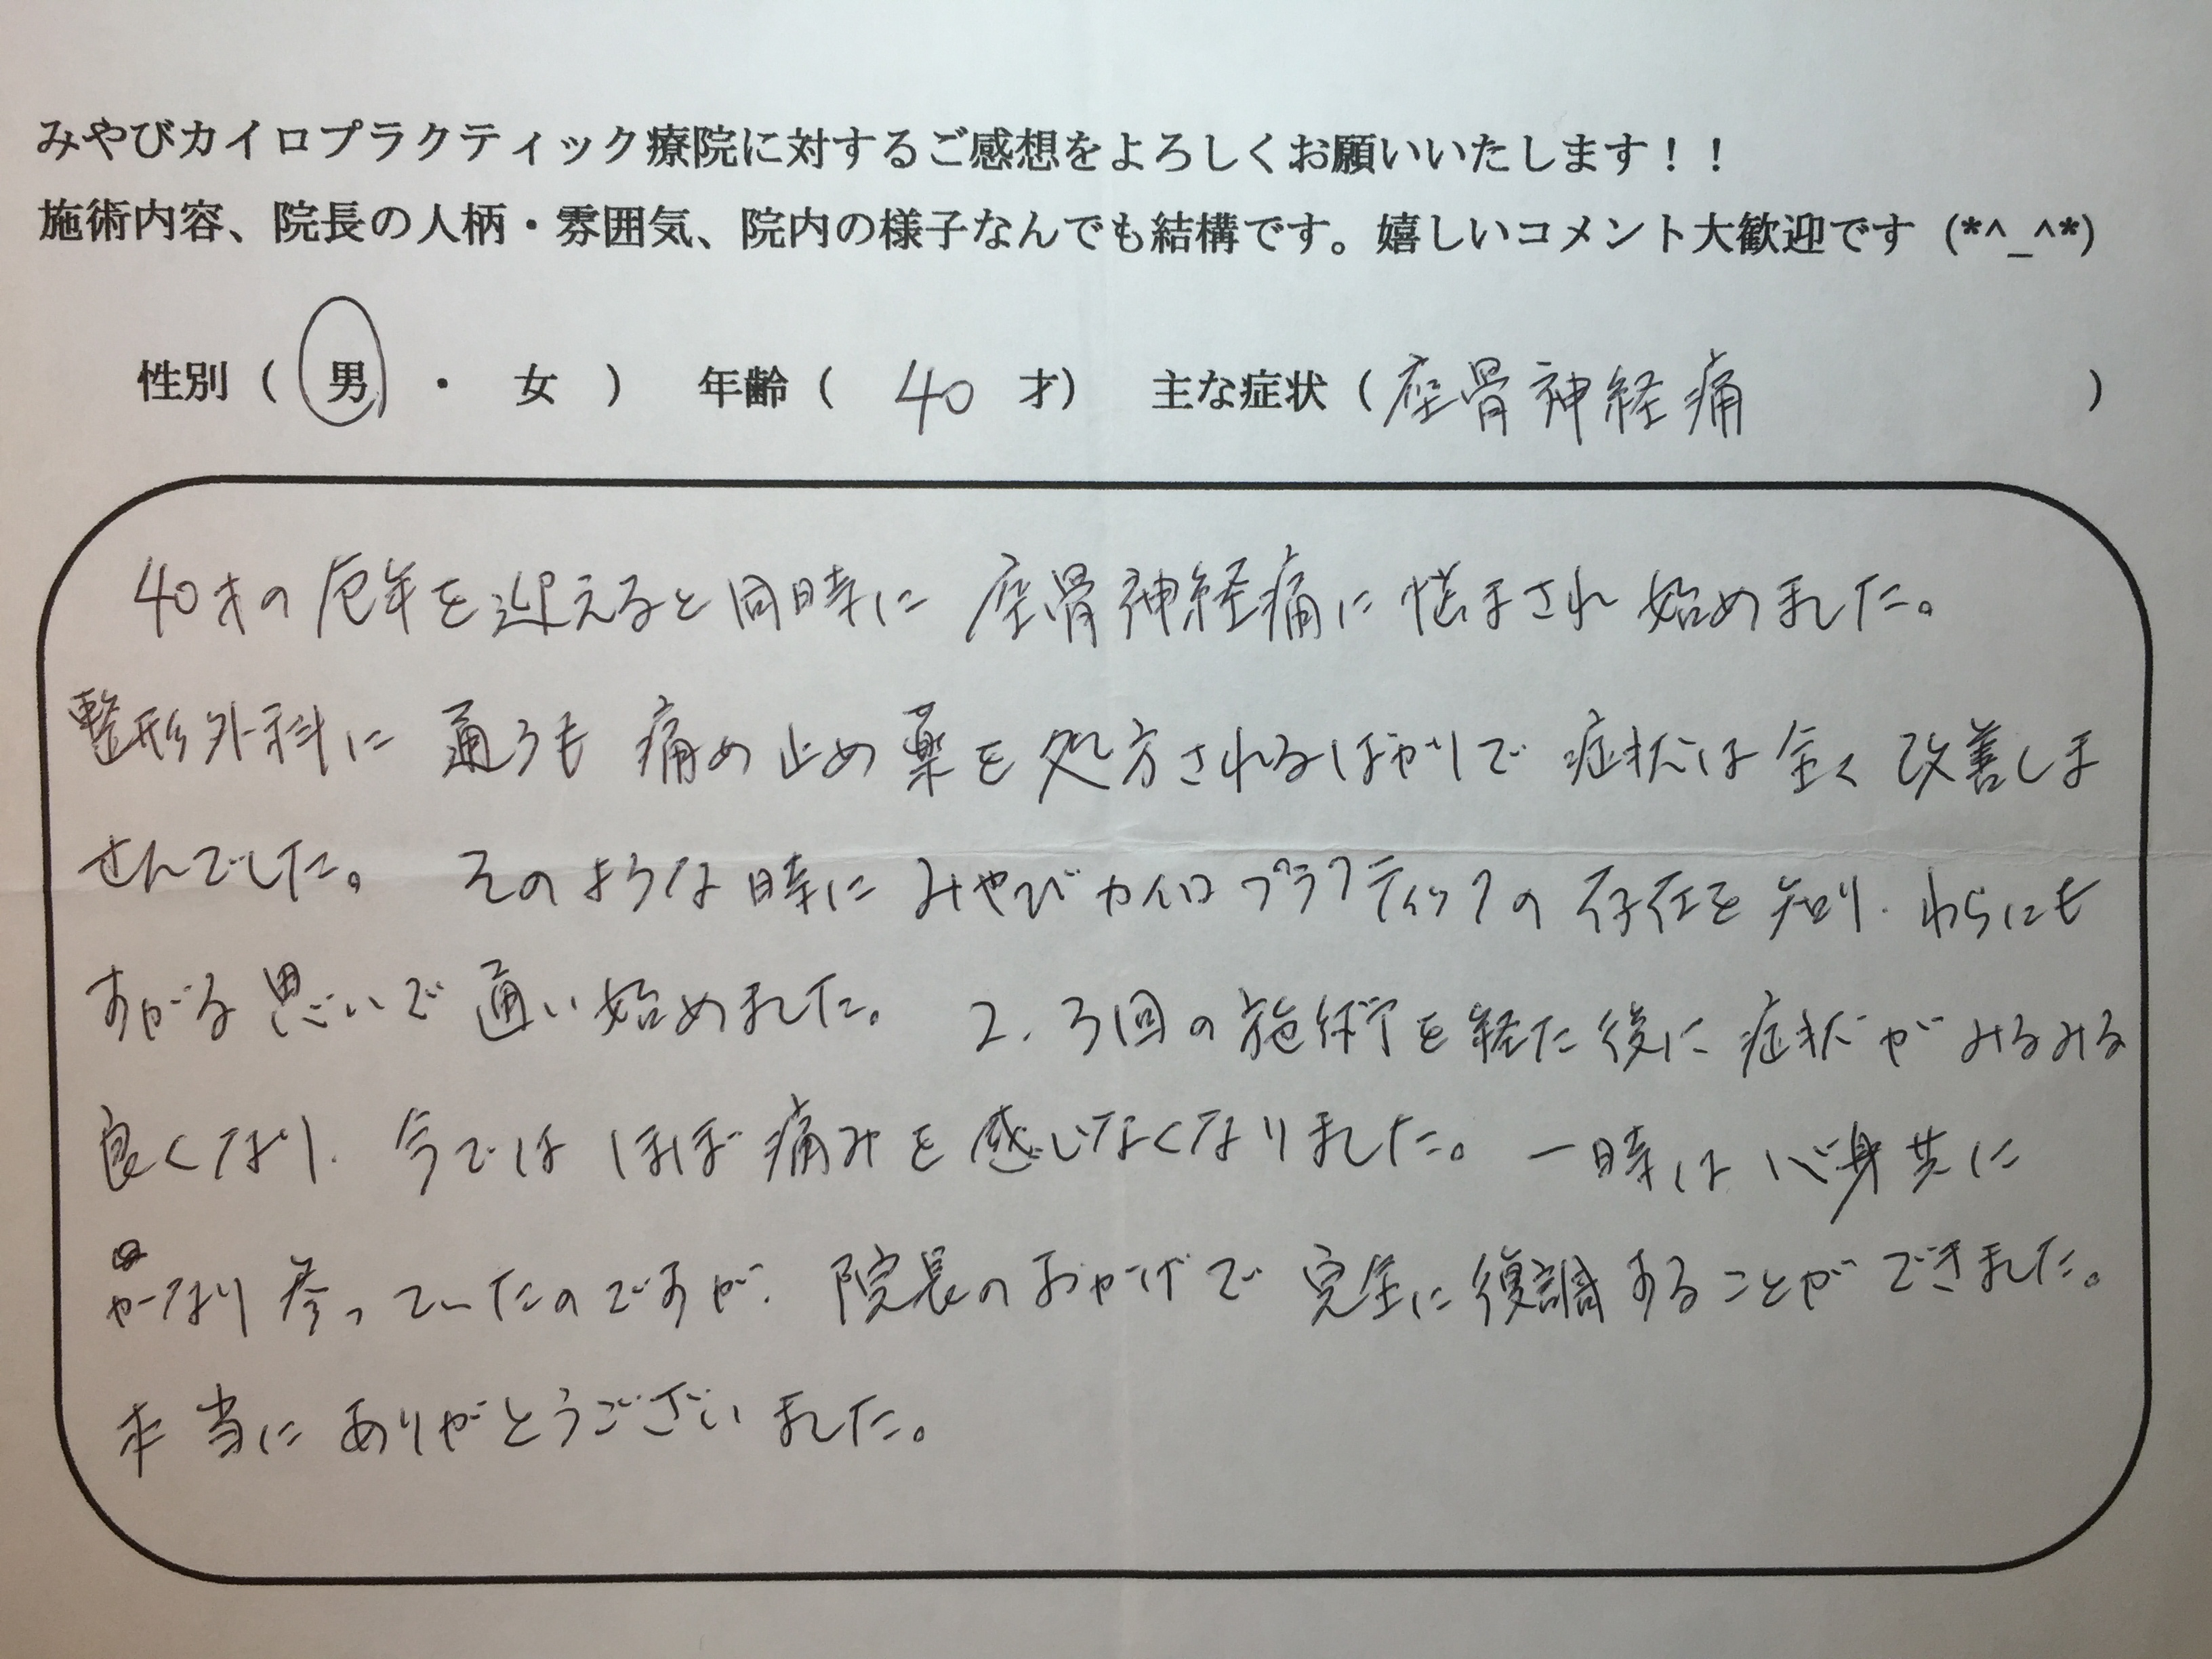 みやびカイロプラクティック療院に対するご感想をよろしくお願いいたします！！
施術内容、院長の人柄・雰囲気、院内の様子なんでも結構です。嬉しいコメント大歓迎です (*^_^*)
性別（ 男 ・ 女 ） 年齢（ 40 才） 主な症状（座骨神経痛 ）
40才の厄年を迎えると同時に座骨神経痛に悩まされ始めました。
整形外科に通うも痛め止め薬を処方されるばかりで症状は全く改善しま
せんでした。 そのような時にみやびカイロプラクティックの存在を知り、わらにも
すがる思いで通い始めました。 2、3回の施術を経た後に症状がみるみる
良くなり、今ではほぼ痛みを感じなくなりました。一時は心身共に
かなり参っていたのですが、院長のおかげで完全に復調することができました。
本当にありがとうございました。